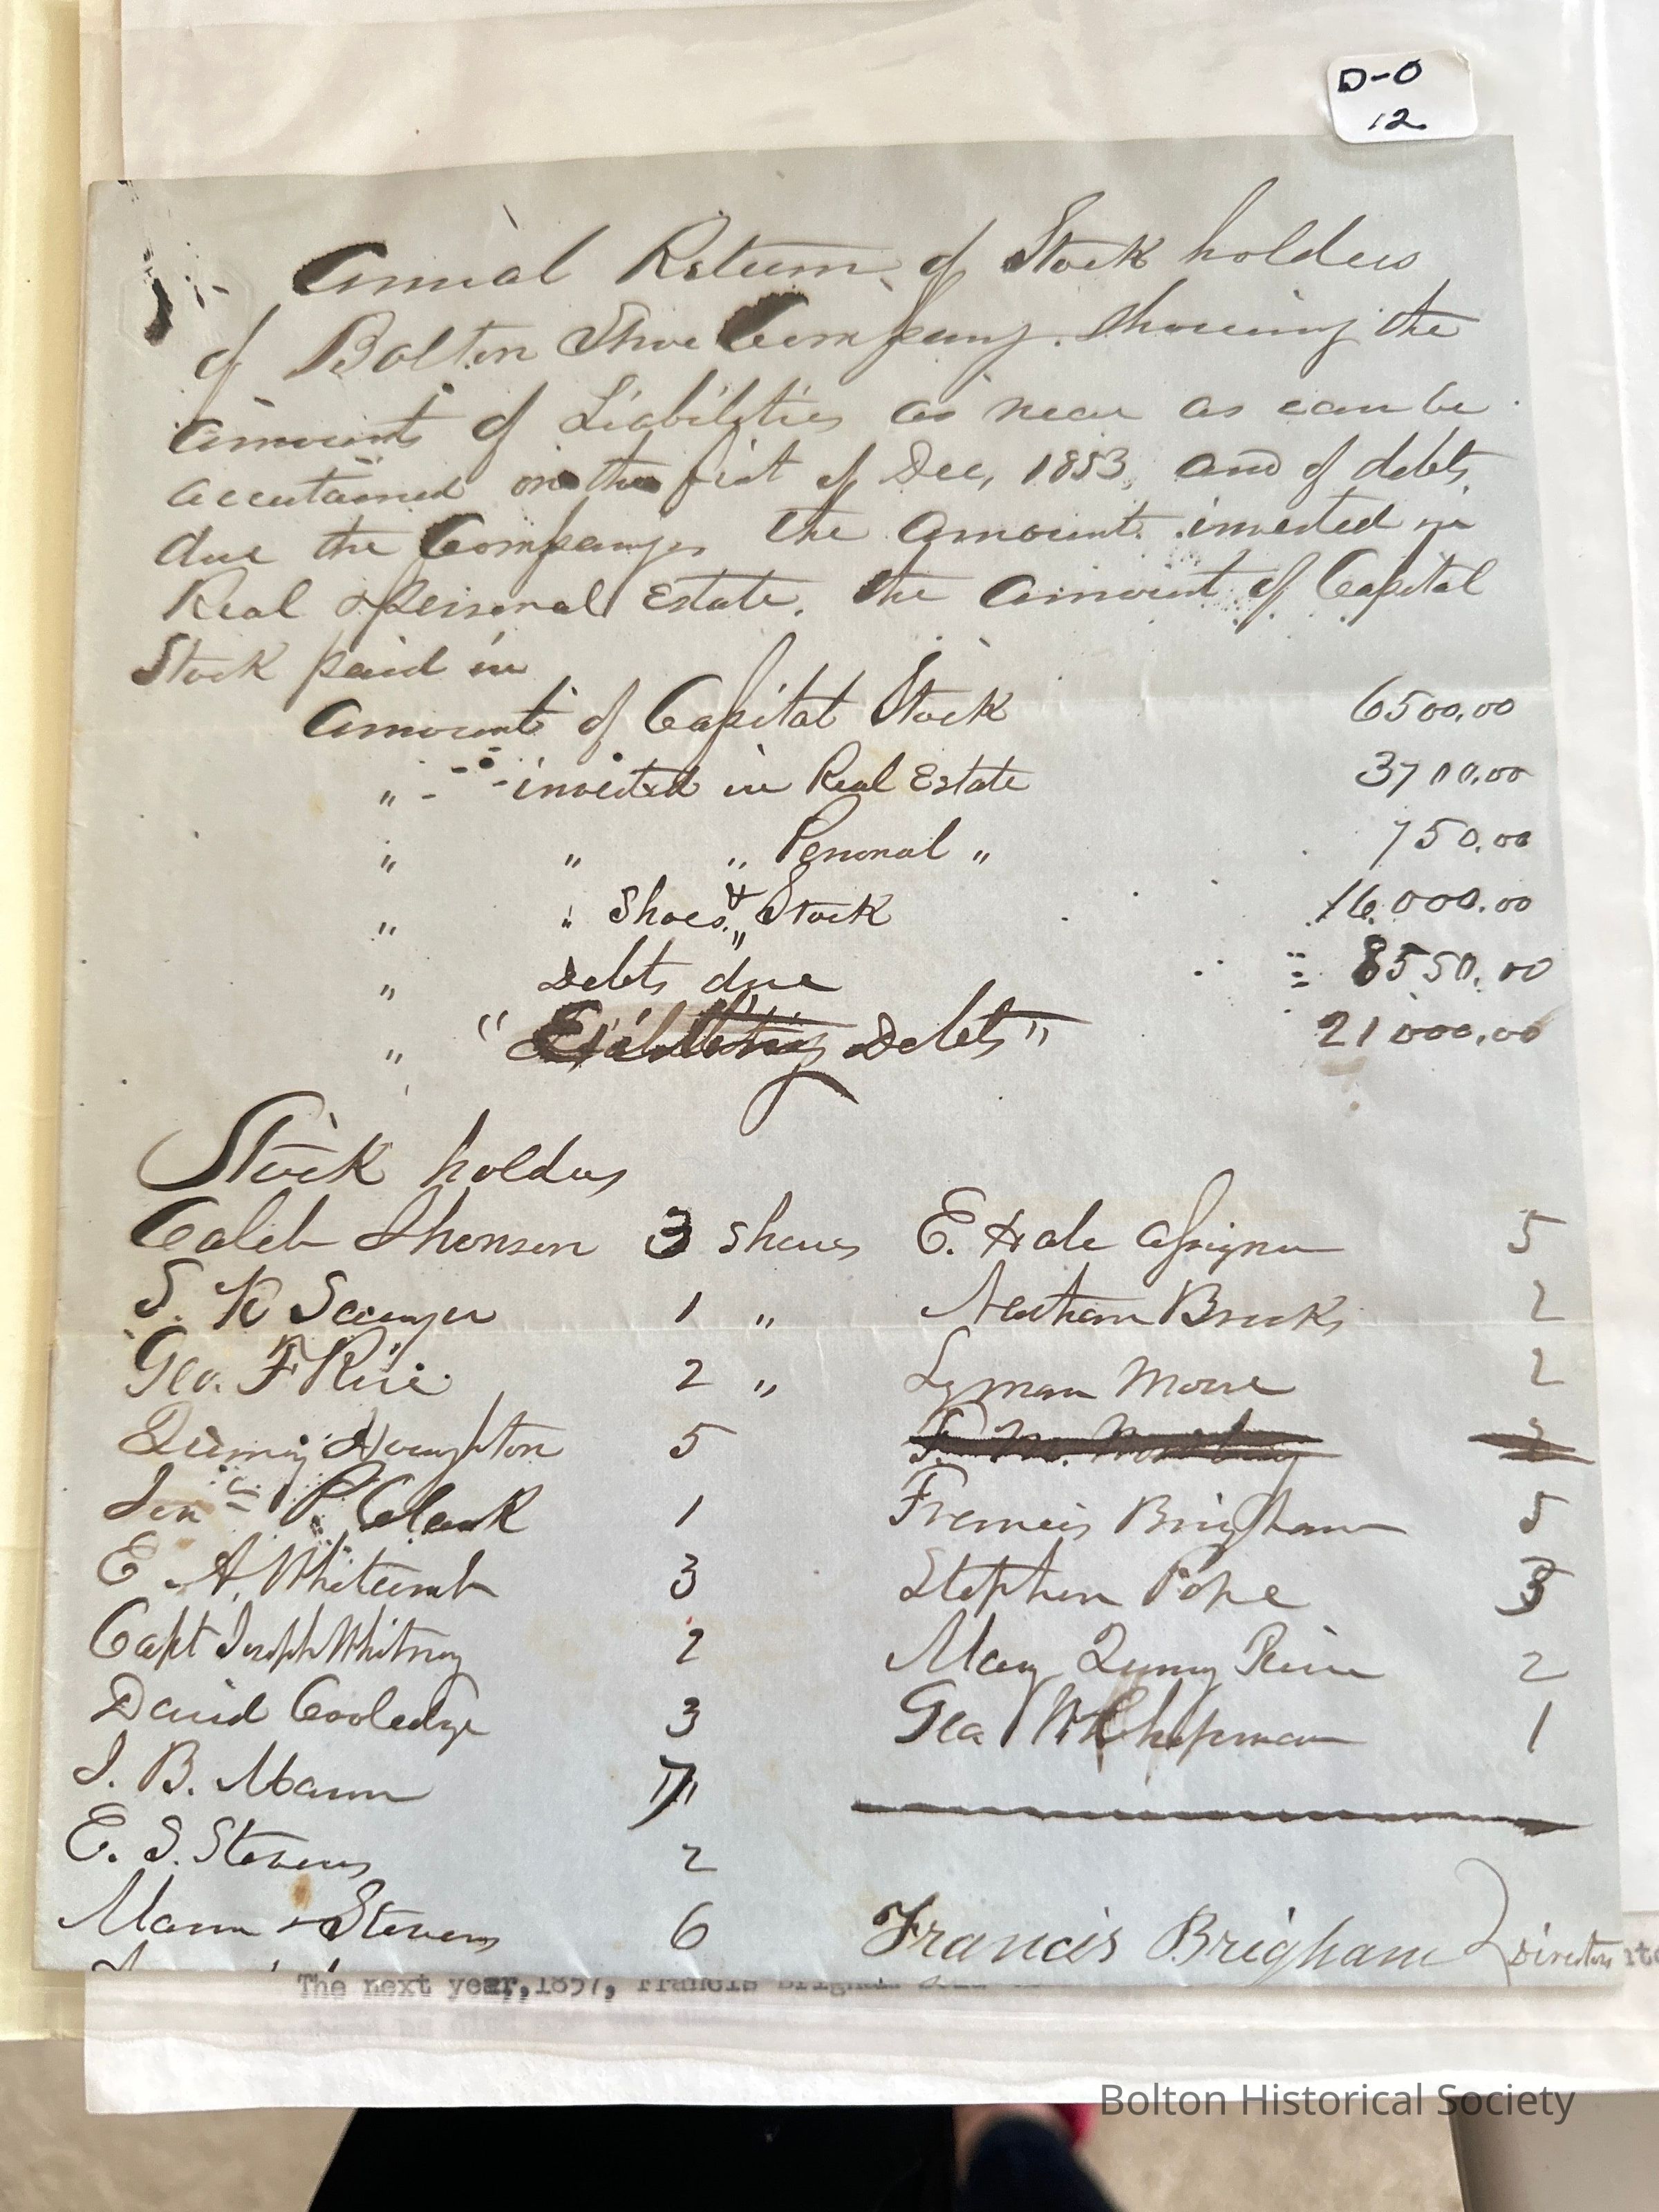 D-0
12
Annual Return of Stock holders
of Bolton Shoe Company. showing the
amount of Liabilities as near as can be
ascertained on the first of Dec, 1853, and of debts
due the Company, the amount invested in
Real & personal Estate. the amount of Capital
Stock paid in
Amount of Capital Stock 6500,00
" invested in Real Estate 3700,00
" " " Personal " 750,00
" " Shoes & Stock 16,000.00
" Debts due 8550,00
" " Debts" 21000,00
Stock holders
Caleb 3 shares E. Hale Assignee 5
S. K Sawyer 1 " Nathan Brooks 2
Geo. F Rice 2 " Lyman Morse 2
Quincy Houghton 5
P Clark 1 Francis Brigham 5
E A. Whitcomb 3 Stephen Pope 3
Capt Joseph Whitney 2 Mary Quincy Rice 2
David Cooledge 3 Geo W Chipman 1
J. B. Mann
E. S. Stevens 2
Mann & Stevens 6 Francis Brigham Directors
The next year, 1857, Francis
Bolton Historical Society